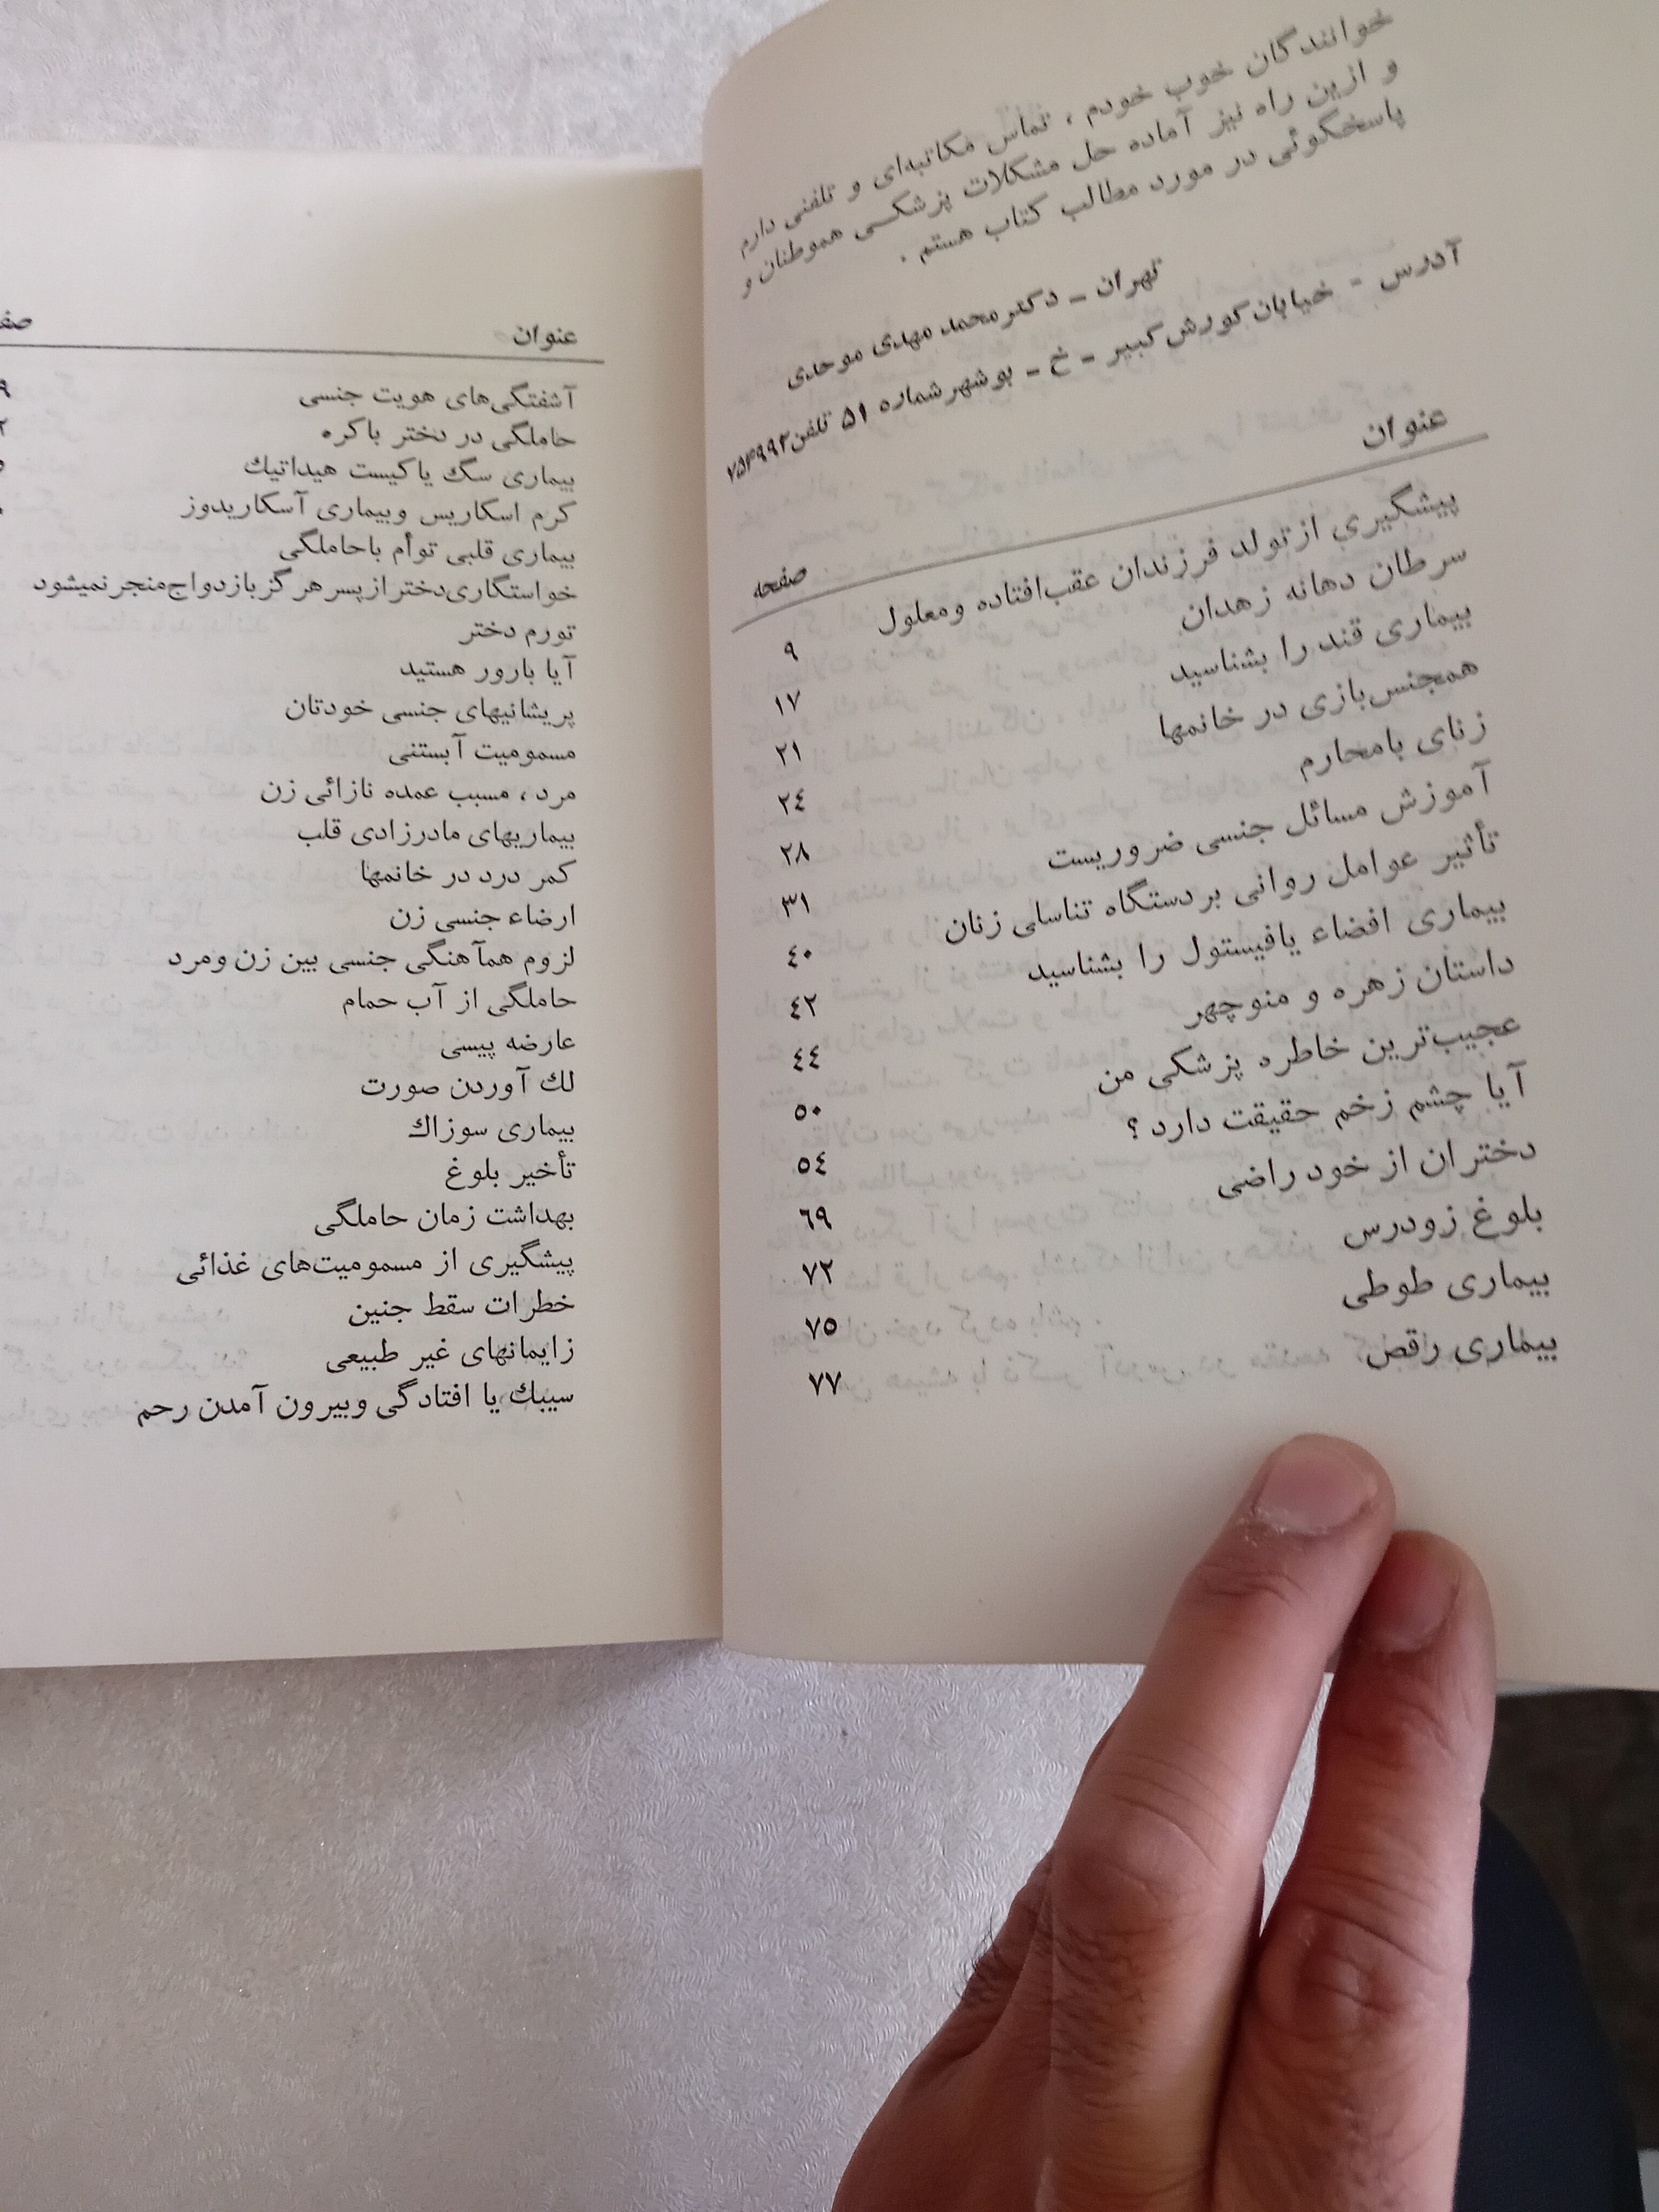 خوانندگان خوب خودم ، تماس مکاتبه‌ای و تلفنی دارم
و ازین راه نیز آماده حل مشکلات پزشکی هموطنان و
پاسخگوئی در مورد مطالب کتاب هستم .
تهران ـ دکتر محمد مهدی موحدی
آدرس - خیابان کورش کبیر ـ خ ـ بوشهر شماره ۵۱ تلفن ۷۵۴۹۹۲
عنوان صفحه
پیشگیری از تولد فرزندان عقب‌افتاده و معلول ۹
سرطان دهانه زهدان ۱۷
بیماری قند را بشناسید ۲۱
همجنس‌بازی در خانمها ۲٤
زنای بامحارم ۲۸
آموزش مسائل جنسی ضروریست ۳۱
تأثیر عوامل روانی بر دستگاه تناسلی زنان ٤۰
بیماری افضاء یافیستول را بشناسید ٤۲
داستان زهره و منوچهر ٤٤
عجیب‌ترین خاطره پزشکی من ۵۰
آیا چشم زخم حقیقت دارد ؟ ۵٤
دختران از خود راضی ٦۹
بلوغ زودرس ۷۲
بیماری طوطی ۷۵
بیماری رقص ۷۷
عنوان
آشفتگی‌های هویت جنسی
حاملگی در دختر باکره
بیماری سگ یا کیست هیداتیك
کرم اسکاریس وبیماری آسکاریدوز
بیماری قلبی توأم باحاملگی
خواستگاری دختر از پسر هرگز بازدواج منجر نمیشود
تورم دختر
آیا بارور هستید
پریشانیهای جنسی خودتان
مسمومیت آبستنی
مرد ، مسبب عمده نازائی زن
بیماریهای مادرزادی قلب
کمر درد در خانمها
ارضاء جنسی زن
لزوم همآهنگی جنسی بین زن ومرد
حاملگی از آب حمام
عارضه پیسی
لك آوردن صورت
بیماری سوزاك
تأخیر بلوغ
بهداشت زمان حاملگی
پیشگیری از مسمومیت‌های غذائی
خطرات سقط جنین
زایمانهای غیر طبیعی
سیبك یا افتادگی وبیرون آمدن رحم